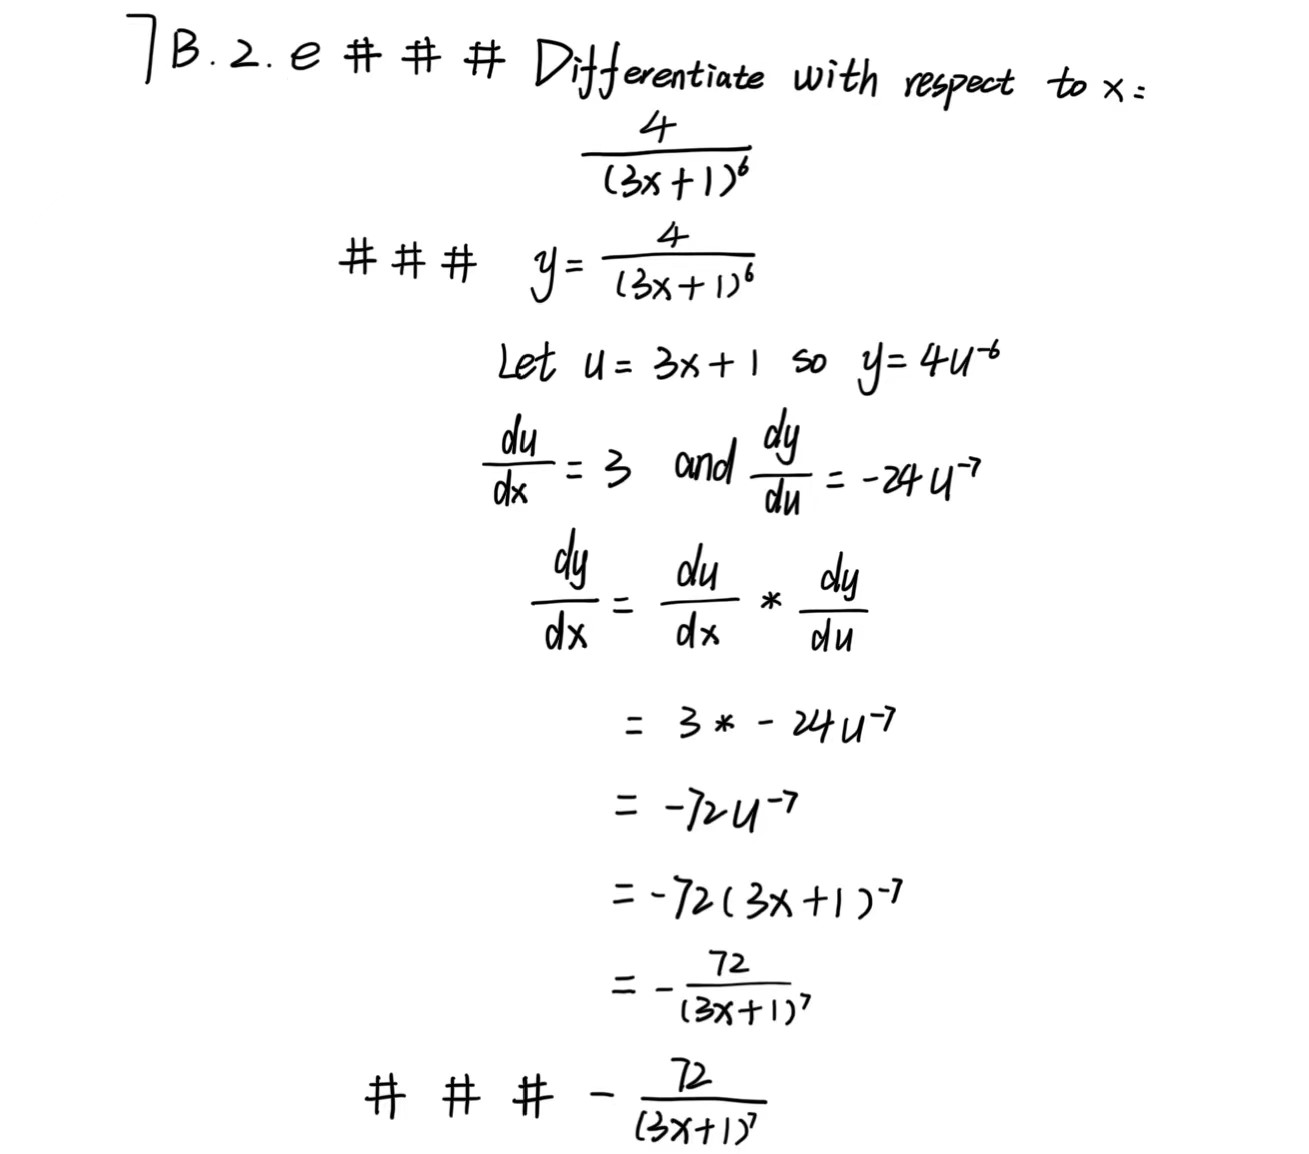 7B.2.e # # # Differentiate with respect to x:
\frac{4}{(3x+1)^6}
# # # y = \frac{4}{(3x+1)^6}
Let u = 3x+1 so y = 4u^{-6}
\frac{du}{dx} = 3 and \frac{dy}{du} = -24u^{-7}
\frac{dy}{dx} = \frac{du}{dx} * \frac{dy}{du}
= 3 * -24u^{-7}
= -72u^{-7}
= -72(3x+1)^{-7}
= -\frac{72}{(3x+1)^7}
# # # -\frac{72}{(3x+1)^7}